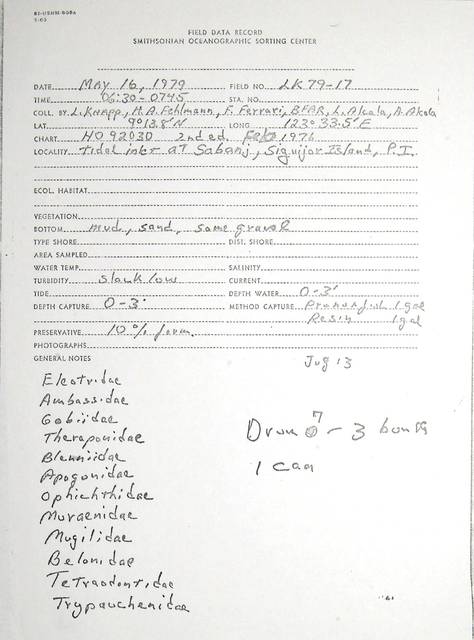 SI-USNM-808A
5-65
FIELD DATA RECORD
SMITHSONIAN OCEANOGRAPHIC SORTING CENTER
DATE May 16, 1979 FIELD NO. LK79-17
TIME 06:30-0745 STA. NO.
COLL. BY L. Knapp, H.A. Fehlmann, F. Ferrari, BFAR, L. Alcala, A. Alcala
LAT. 9°13.8'N LONG 123°33.5'E
CHART HO 92030 2nd ed. Feb 1976
LOCALITY Tidal inlet at Sabang, Siquijor Island, P.I.
ECOL. HABITAT
VEGETATION
BOTTOM mud, sand, some gravel
TYPE SHORE DIST. SHORE
AREA SAMPLED
WATER TEMP. SALINITY
TURBIDITY slack low CURRENT
TIDE DEPTH WATER 0-3'
DEPTH CAPTURE 0-3' METHOD CAPTURE Pronoxfish 1 gal
Resin 1 gal
PRESERVATIVE 10% form.
PHOTOGRAPHS
GENERAL NOTES Jug 13
Eleotridae
Ambassidae
Gobiidae
Theraponidae
Blenniidae
Apogonidae
Ophichthidae
Muraenidae
Mugilidae
Belonidae
Tetraodontidae
Trypauchenidae
Drum 7 - 3
1 can